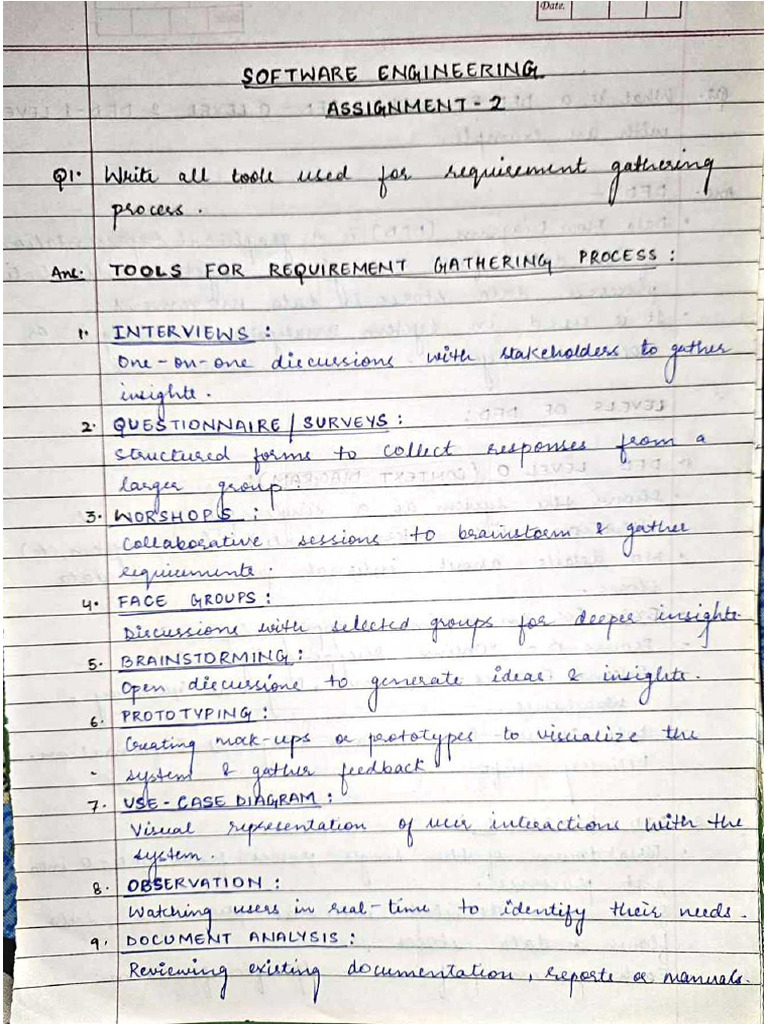 Date.
SOFTWARE ENGINEERING
ASSIGNMENT - 2
Q1. Write all tools used for requirement gathering
process.
Ans. TOOLS FOR REQUIREMENT GATHERING PROCESS :
1. INTERVIEWS :
One-on-one discussions with stakeholders to gather
insights.
2. QUESTIONNAIRE / SURVEYS :
Structured forms to collect responses from a
larger group.
3. WORSHOPS :
Collaborative sessions to brainstorm & gather
requirements.
4. FACE GROUPS :
Discussions with selected groups for deeper insights.
5. BRAINSTORMING :
Open discussions to generate ideas & insights.
6. PROTOTYPING :
Creating mock-ups or prototypes to visualize the
system & gather feedback
7. USE - CASE DIAGRAM :
Visual representation of user interactions with the
system.
8. OBSERVATION :
Watching users in real-time to identify their needs.
9. DOCUMENT ANALYSIS :
Reviewing existing documentation, reports or manuals.